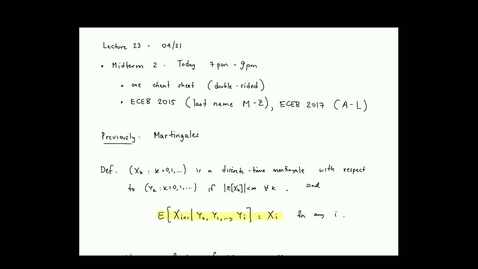 Lecture 23 - 04/21
• Midterm 2. Today 7pm - 9pm
• one cheat sheet (double-sided)
• ECEB 2015 (last name M-Z), ECEB 2017 (A-L)
Previously: Martingales
Def. (Xk : k=0,1,...) is a discrete-time martingale with respect
to (Yk : k=0,1,...) if |E[Xk]|<∞ ∀ k, and
E[Xi+1 | Y0, Y1, ..., Yi] = Xi for any i.